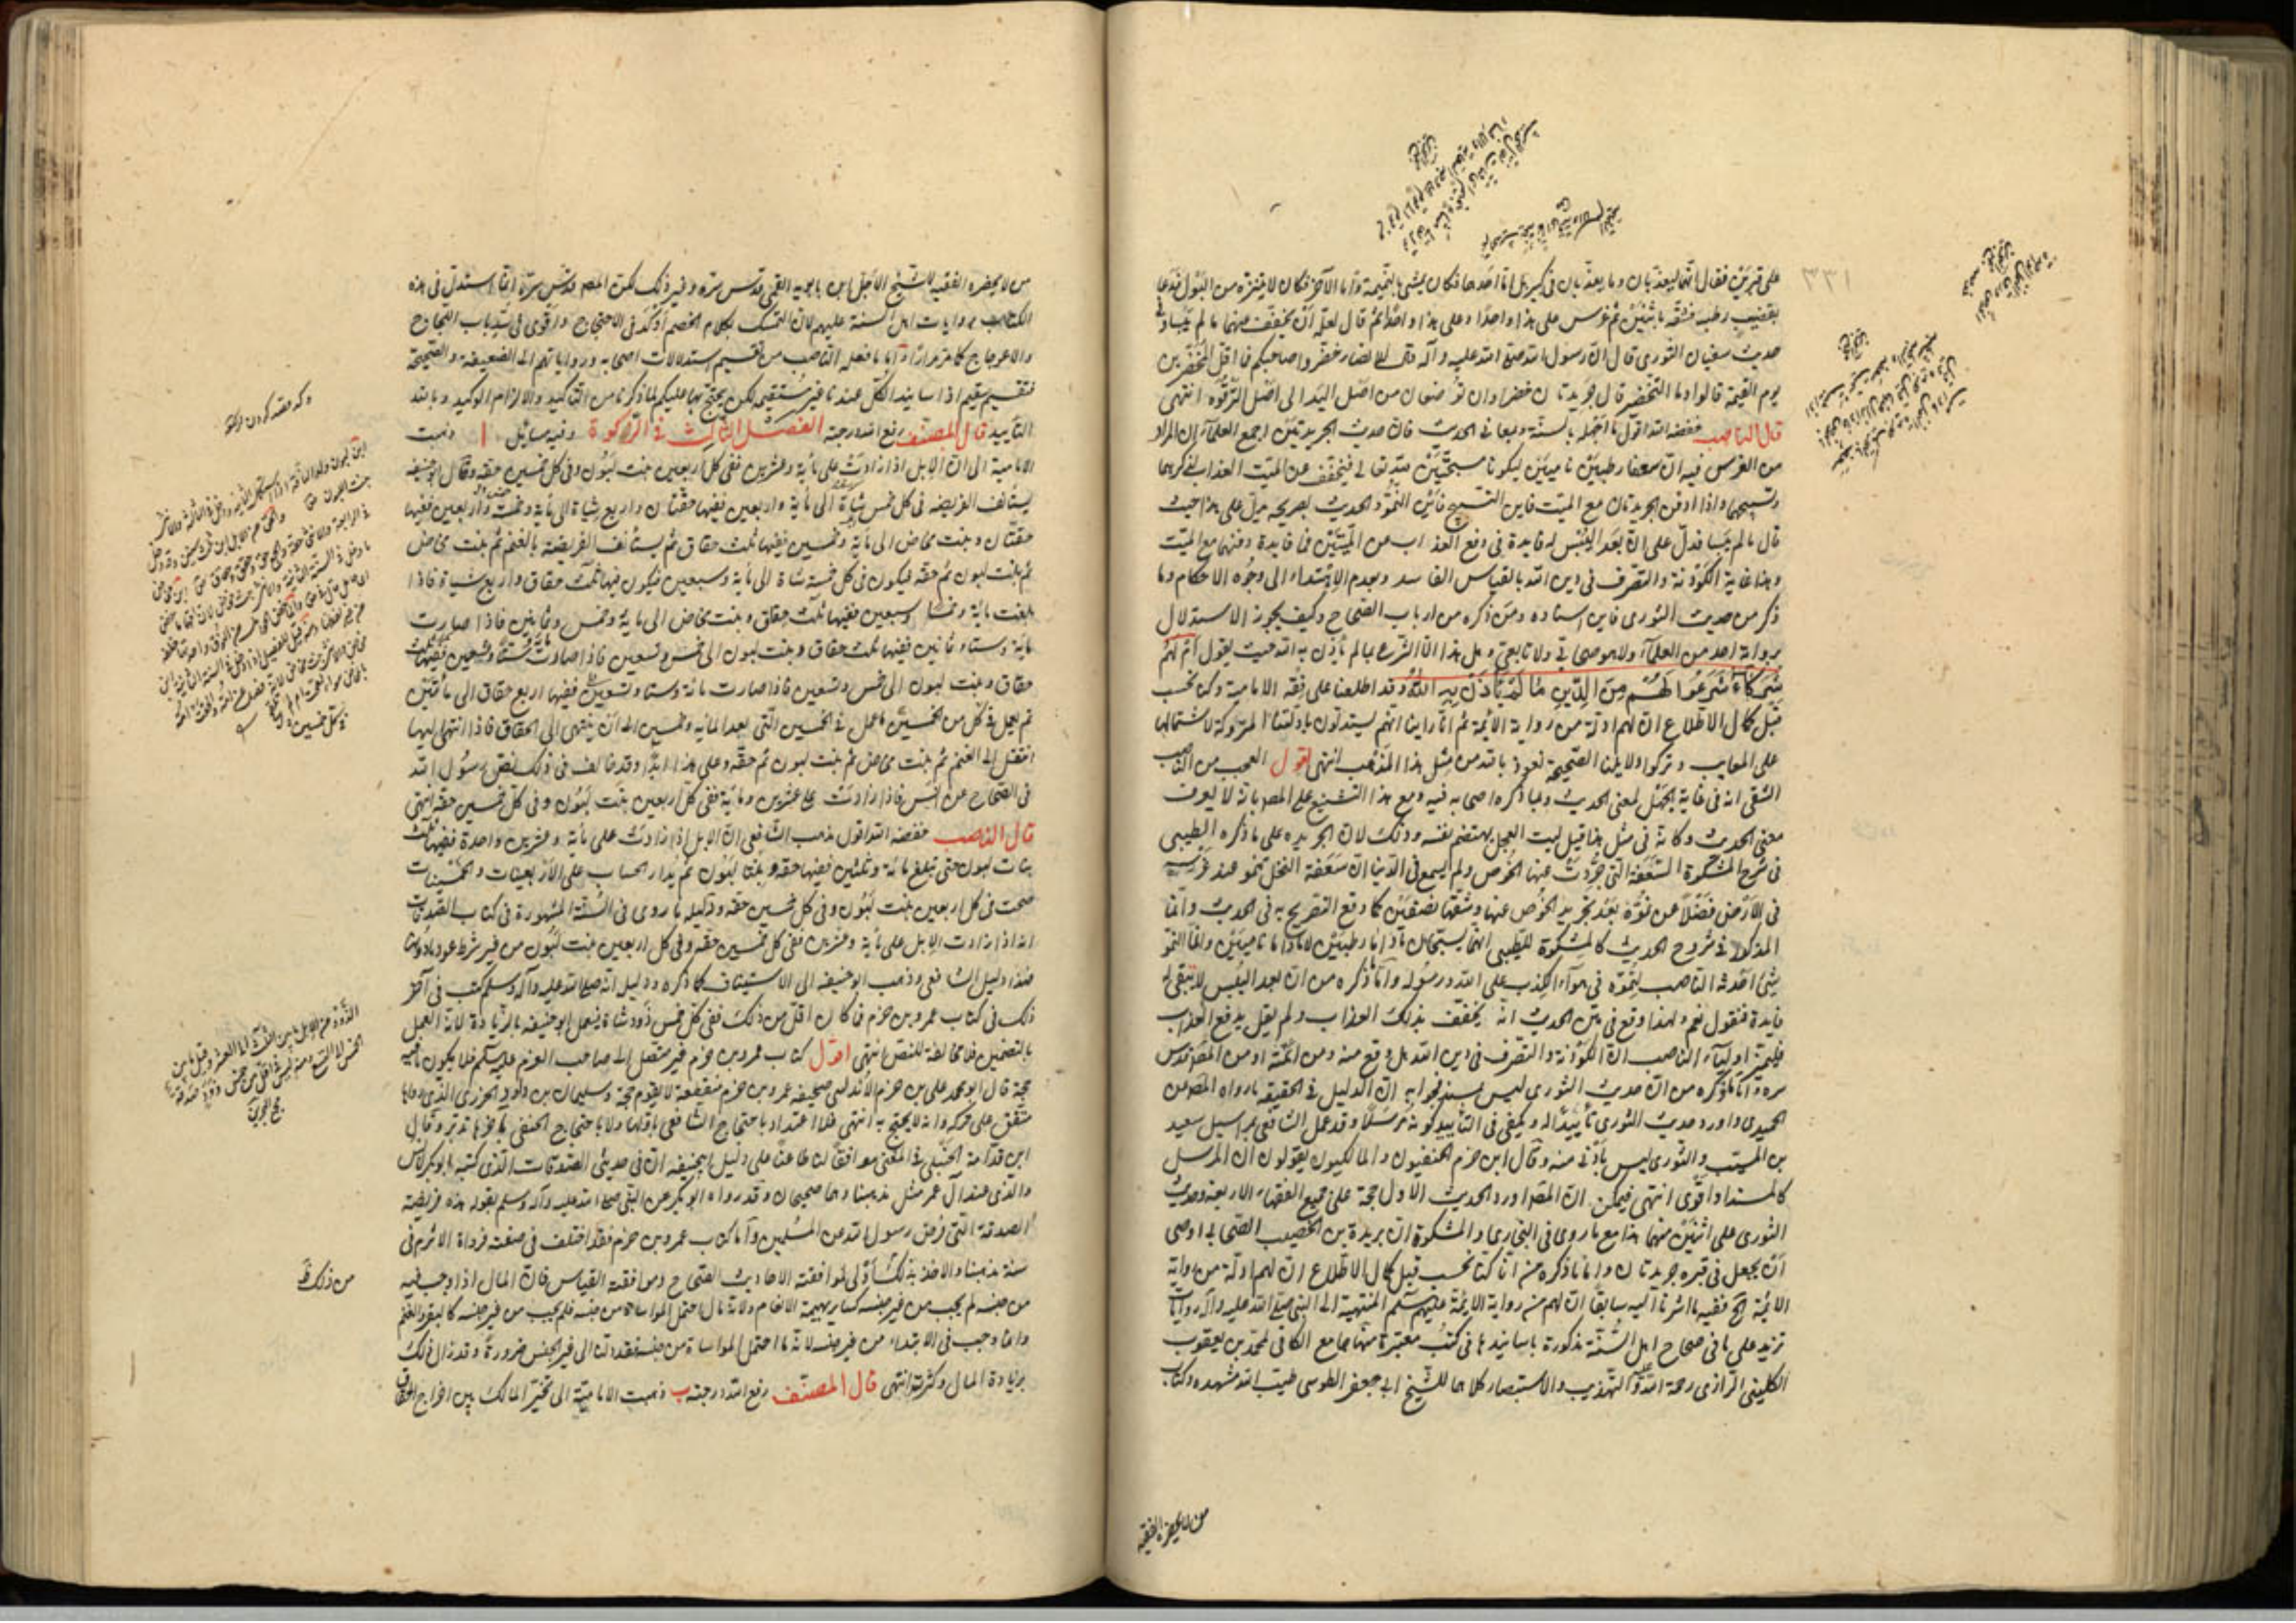 على قبرين فقال انهما ليعذبان وما يعذبان في كبير بل اما احدهما فكان يمشي بالنميمة واما الآخر فكان لا يتنزه من البول فدعا
بقضيب رطب فشقه باثنين ثم غرس على هذا واحدا وعلى هذا واحدا ثم قال لعله ان يخفف عنهما ما لم ييبسا وفي
حديث سفيان الثوري قال ان رسول الله صلى الله عليه وآله قال للانصار خضروا صاحبكم فما اقل المخضرين
يوم القيمة قالوا وما التخضر قال جريدتان خضراوان توضعان من اصل اليد الى اصل الترقوة انتهى
قال الناصب خفضه الله اقول ما اجهله بالسنة ومعاني الحديث فان حديث الجريدتين اجمع العلماء ان المراد
من الغرس فيه ان سعفا رطبين ناميين ليكونا مسبحين لله تعالى فيخفف عن الميت العذاب لذكرهما
وتسبيحهما واذا دفن الجريدتان مع الميت فاين التسبيح فاين النمو والحديث بصريحه يدل على هذا حيث
قال ما لم ييبسا فدل على ان بعد اليبس لم فايدة في دفع العذاب عن الميتين فما فايدة دفنهما مع الميت
وهذا غاية الكودنة والتصرف في دين الله بالقياس الفاسد وبعدم الاهتداء الى وجوه الاحكام وما
ذكر من حديث الثوري فاين اسناده ومن ذكره من ارباب الصحاح وكيف يجوز الاستدلال
برواية احد من العلماء ولا هو صحابي ولا تابعي وهل هذا الا الشرع بما لم يأذن به الله حيث يقول ام لهم
شركاء شرعوا لهم من الدين ما لم يأذن به الله وقد اطلعنا على فقه الامامية وكنا نحسب
قبل كمال الاطلاع ان لهم ادلة من رواية الائمة ثم انا راينا انهم يستدلون بادلتنا المتروكة لاشتمالها
على المعايب وتركوا دلايلنا الصحيحة نعوذ بالله من مثل هذا المذهب انتهى اقول العجب من الناصب
الشقي انه في غاية الجهل لمعنى الحديث ولما ذكره اصحابه فيه ومع هذا التشنيع على المص بانه لا يعرف
معنى الحديث وكانه في مثل هذا قيل ليت العجل يهضم نفسه وذلك لان الجريدة على ما ذكره الطيبي
في شرح المشكوة السعفة التي جردت عنها الخوص ولم يسمع في الدنيا ان سعفة النخل تنمو عند غرسه
في الارض فضلا عن نموه بعد تجريد الخوص عنها وشقها نصفين كما وقع التصريح به في الحديث وانما
المذكور في شروح الحديث كالمشكوة للطيبي انهما يسبحان ما داما رطبين لا ما داما ناميين وانما النمو
شيء احدثه الناصب لنموه في هواء الكذب على الله ورسوله واما ما ذكره من ان بعد اليبس لا يبقى له
فايدة فنقول نعم ولهذا وقع في متن الحديث انه يخفف بذلك العذاب ولم يقل يدفع العذاب
فليميز اولياء الناصب ان الكودنة والتصرف في دين الله هل وقع منه ومن ائمته او من المص قدس
سره واما ما ذكره من ان حديث الثوري ليس بسند فجوابه ان الدليل في الحقيقة ما رواه المص من
الحميدي واورد حديث الثوري تأييدا له ويكفي في التأييد كونه مرسلا وقد عمل الشافعي بمراسيل سعيد
بن المسيب والثوري ليس بأدنى منه وقال ابن حزم الحنفيون والمالكيون يقولون ان المرسل
كالمسند او اقوى انتهى فيمكن ان المص اورد الحديث الاول حجة على جميع الفقهاء الاربعة وحديث
الثوري على اثنين منهما هذا مع ما روي في البخاري والمشكوة ان بريدة بن الخصيب الصحابي اوصى
ان يجعل في قبره جريدتان واما ما ذكره من انا كنا نحسب قبل كمال الاطلاع ان لهم ادلة من رواية
الائمة الخ ففيه ما اشرنا اليه سابقا ان لهم من رواية الائمة عليهم السلم المنتهية الى النبي صلى الله عليه وآله روايات
تزيد على ما في صحاح اهل السنة مذكورة باسانيدها في كتب معتبرة منها جامع الكافي لمحمد بن يعقوب
الكليني الرازي رحمة الله وكتابي التهذيب والاستبصار كلاهما للشيخ ابي جعفر الطوسي طيب الله مشهده وكتاب
من لا يحضره الفقيه
من لا يحضره الفقيه للشيخ الاجل ابن بابويه القمي قدس سره وغير ذلك لكن المص قدس سره انما استدل في هذه
الكتاب بروايات اهل السنة عليهم لان التمسك بكلام الخصم أوكد في الاحتجاج واقوى في سد باب اللجاج
والاعوجاج كما مر مرارا واما ما فعله الناصب من تقسيم استدلالات اصحابه ورواياتهم الى الضعيفة والصحيحة
فتقسيم سقيم اذ اسانيد الكل عندنا غير مستقيم لكن يحتج بها عليكم لما ذكرنا من التأكيد والالزام الوكيد وبالله
التأييد قال المصنف رفع الله درجته الفصل الثالث في الزكوة وفيه مسائل ا ذهبت
الامامية الى ان الابل اذا زادت على مأية وعشرين ففي كل اربعين بنت لبون وفي كل خمسين حقه وقال ابو حنيفه
يستأنف الفريضه في كل خمس شاة الى مأية واربعين ففيها حقتان واربع شياة الى مأية وخمسة واربعين ففيها
حقتان وبنت مخاض الى مأية وخمسين ففيها ثلث حقاق ثم يستأنف الفريضة بالغنم ثم بنت مخاض
ثم بنت لبون ثم حقه فيكون في كل خمسة شاة الى مأية وسبعين فيكون فيها ثلث حقاق واربع شياة فاذا
بلغت مائة وخمسا وسبعين ففيها ثلث حقاق وبنت مخاض الى ماية وخمس وثمانين فاذا صارت
ماية وستا وثمانين ففيها ثلث حقاق وبنت لبون الى خمس وتسعين فاذا صارت مائة وستا وتسعين ففيها ثلث
حقاق وبنت لبون الى خمس وتسعين فاذا صارت مائة وستا وتسعين ففيها اربع حقاق الى مأتين
ثم يعمل في كل من الخمسين كما عمل في الخمسين التي بعد المايه وخمسين الى ان ينتهى الى الحقاق فاذا انتهى اليها
انتقل الى الغنم ثم بنت مخاض ثم بنت لبون ثم حقه وعلى هذا ابدا وقد خالف في ذلك نص رسول الله
في الصحاح عن انس فاذا زادت على عشرين وماية ففي كل اربعين بنت لبون وفي كل خمسين حقه انتهى
قال الناصب خفضه الله اقول مذهب الشافعي ان الابل اذا زادت على مأية وعشرين واحدة ففيها ثلث
بنات لبون حتى تبلغ مائة وثلثين ففيها حقه وبنتا لبون ثم يدار الحساب على الاربعينات والخمسينات
فتجب في كل اربعين بنت لبون وفي كل خمسين حقه ودليله ما روى في السنة المشهورة في كتاب الصدقات
انه اذا زادت الابل على مأية وعشرين ففي كل خمسين حقه وفي كل اربعين بنت لبون من غير شرط عود ما دونها
هذا دليل الشافعي وذهب ابو حنيفه الى الاستيناف كما ذكره ودليله انه صلى الله عليه وآله وسلم كتب في آخر
ذلك في كتاب عمرو بن حزم فما كان اقل من ذلك ففي كل خمس ذود شاة فيعمل ابو حنيفه بالزيادة لانه العمل
بالنصين فلا مخالفة للنص انتهى اقول كتاب عمرو بن حزم غير متصل الى صاحب العزم عليه السلم فلا يكون فيه
حجة قال ابو محمد علي بن حزم الاندلسي صحيفه عمرو بن حزم منقطعه لا يقوم حجة وسليمان بن داود الجزري الذي رواها
متفق على تركه وانه لا يحتج به انتهى فلا اعتداد باحتجاج الشافعي باولها ولا باحتجاج الحنفي بآخرها تدبر وقال
ابن قدامة الحنبلي في المغني موافقا لنا طاعنا على دليل ابي حنيفه ان في حديثي الصدقات الذي كتبه ابو بكر لانس
والذي عند آل عمر مثل مذهبنا وهما صحيحان وقد رواه ابو بكر عن النبي صلى الله عليه وآله وسلم بقوله هذه فريضة
الصدقة التي فرض رسول الله من المسلمين وأما كتاب عمرو بن حزم فقد اختلف في صفته فرواه الاثرم في
سننه مثل مذهبنا والاخذ بذلك اولى لموافقته الاحاديث الصحاح وموافقته القياس فان المال اذا وجب فيه
من جنسه لم يجب من غير جنسه كساير بهيمة الانعام ولانه مال احتمل المواساة من جنسه فلم يجب من غير جنسه كالبقر والغنم
وانما وجب في الابتداء من غير جنسه لانه ما احتمل المواساة من جنسه فعدلنا الى غير الجنس ضرورة وقد زال ذلك
بزيادة المال وكثرته انتهى قال المصنف رفع الله درجته ب ذهبت الامامية الى تخير المالك بين اخراج الحقاق
من ذلك